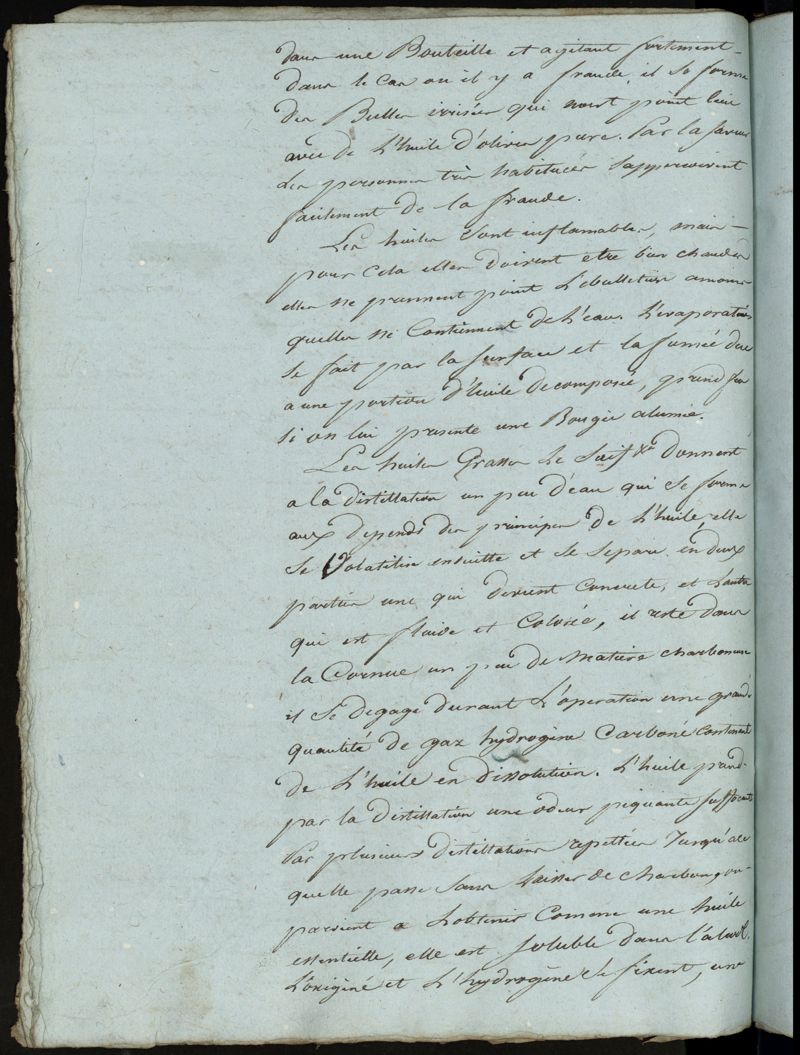 dans une Bouteille et agitant fortement
dans le cas ou il y a fraude, il se forme
des Bulles irisées qui nont point lieu
avec de L'huile d'olives pure. Par la saveur
Les personnes très habituées sapperçoivent
facilement de la fraude.
Les huiles sont inflamables, mais
pour cela elles doivent etre bien chaudes
elles ne prennent point L'ebullition amoins
quelles ne Contiennent de L'eau. L'evaporation
se fait par la surface et la fumée due
a une portion d'huile decomposée, prend feu
si on lui presente une Bougie alumée.
Les huiles Grasses Le Suif &a Donnent
a la distillation un peu d'eau qui se forme
aux depends des principes de L'huile, elle
se Volatilise ensuitte et se separe en deux
parties une qui devient concrete, et L'autre
qui est fluide et Colorée, il reste dans
la Cornue un peu de matiere charboneuse
il se degage durant L'operation une grande
quantité de gaz hydrogène Carboné contenant
de L'huile en dissolution. L'huile prend
par la distillation une odeur piquante suffocante
Par plusieurs distillations repettées Jusqu'a ce
quelle passe sans laisser de charbon, on
parvient a L'obtenir Comme une huile
essentielle, elle est soluble dans l'alcool.
L'oxigène et L'hydrogène s'y fixent, une